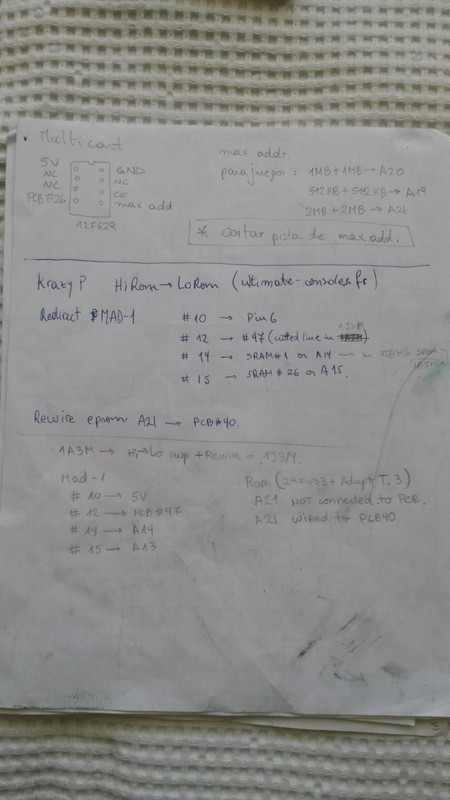 • Multicart
5V GND
NC NC
NC CE
PCB#26 max add
12F629
max addr:
para juegos: 1MB+1MB → A20
512KB + 512KB → A19
2MB + 2MB → A21
* Cortar pista de max add.
Krazy P HiRom → LoRom (ultimate-consoles.fr)
Redirect MAD-1
#10 → Pin 6
#12 → #47 (cutted line in 1J3M)
#14 → SRAM#1 or A14 → in
#15 → SRAM#26 or A15.
Rewire eprom A21 → PCB#40.
1A3M → Hi→Lo swp + Rewire = 1J3M.
Mad-1
#10 → 5V
#12 → PCB#47
#14 → A14
#15 → A13
Rom (29F033 + Adapt T.3)
A21 NOT connected to PCB.
A21 wired to PCB40.